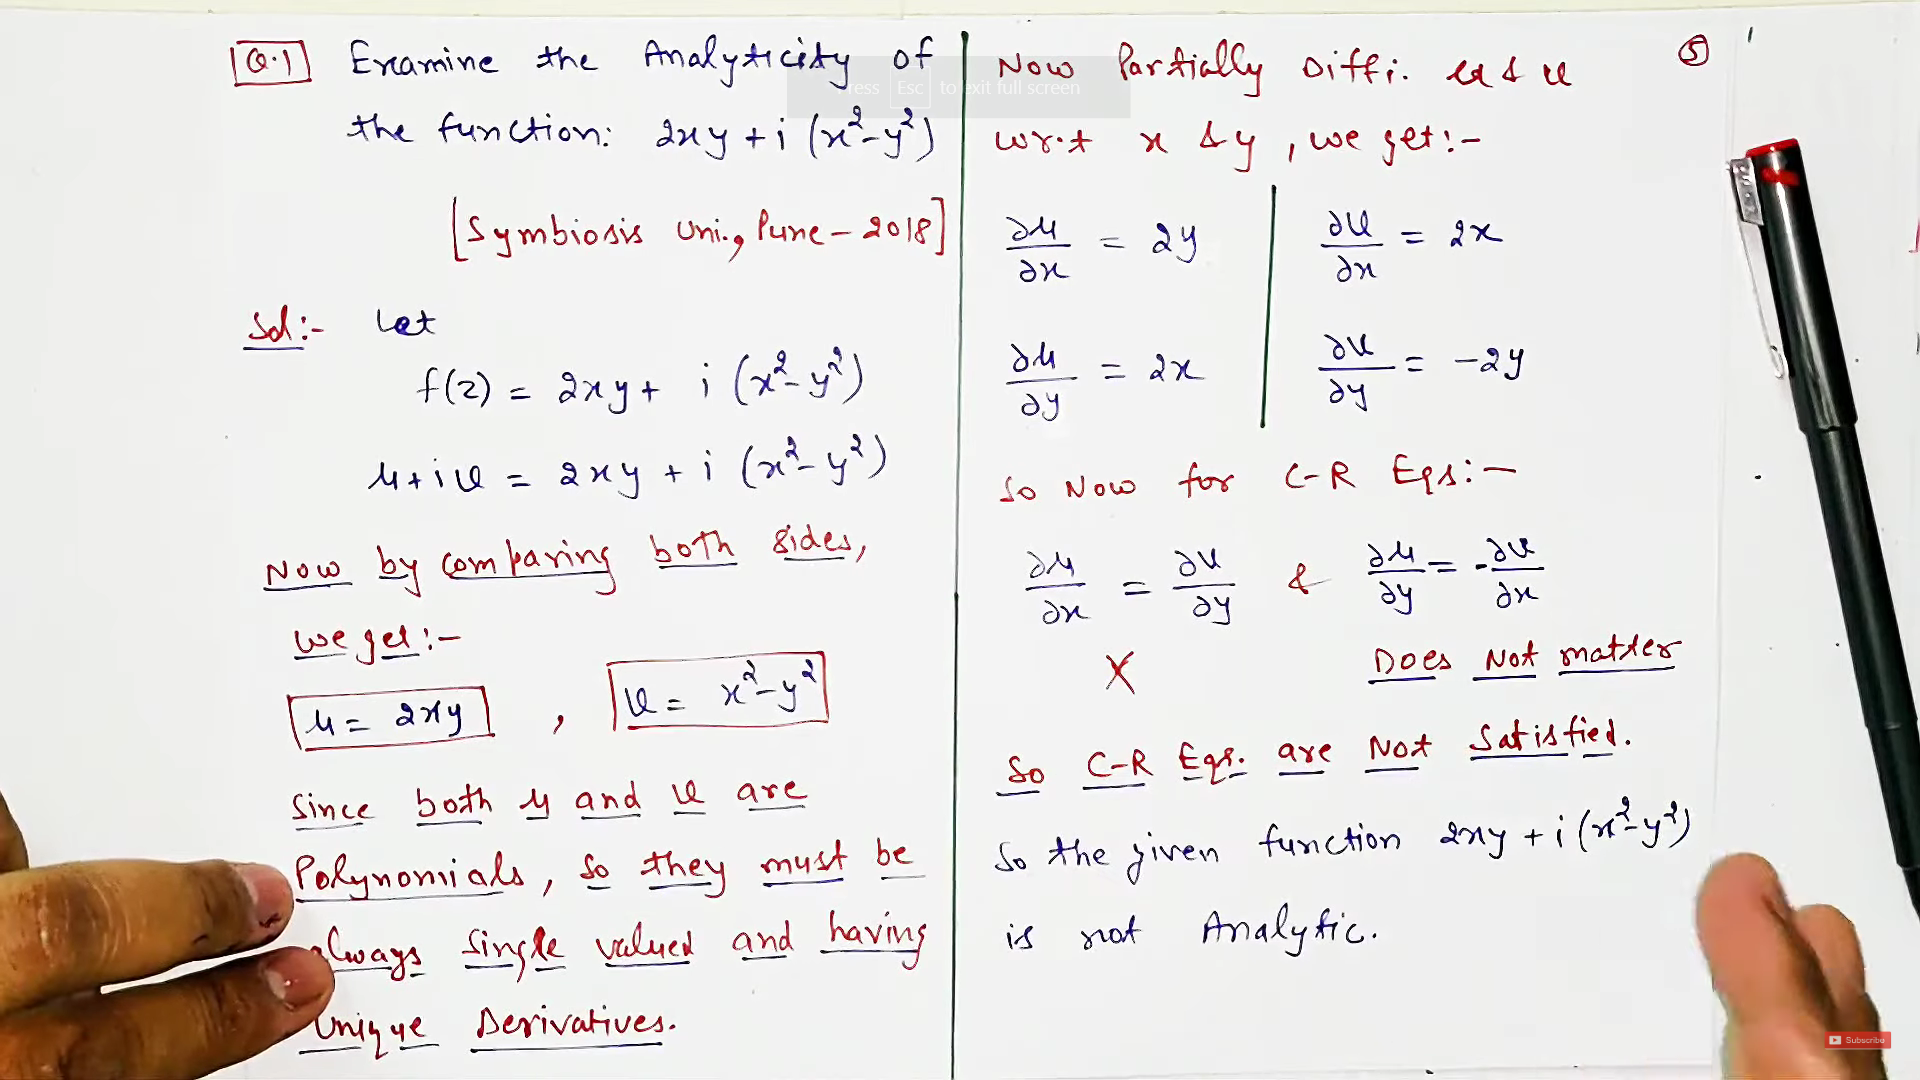 Q.1 Examine the Analyticity of
the function: 2xy + i (x²-y²)
[Symbiosis Uni., Pune - 2018]
Sol:- Let
f(z) = 2xy + i (x²-y²)
u+iv = 2xy + i (x²-y²)
Now by comparing both sides,
we get:-
u = 2xy , v = x²-y²
Since both u and v are
Polynomials, so they must be
always single valued and having
unique Derivatives.
Press Esc to exit full screen
5
Now Partially Diffi. u & v
w.r.t x & y, we get:-
∂u/∂x = 2y ∂v/∂x = 2x
∂u/∂y = 2x ∂v/∂y = -2y
So Now for C-R Eqs:-
∂u/∂x = ∂v/∂y & ∂u/∂y = -∂v/∂x
X Does Not matter
So C-R Eqs. are Not Satisfied.
So the given function 2xy + i (x²-y²)
is not Analytic.
Subscribe